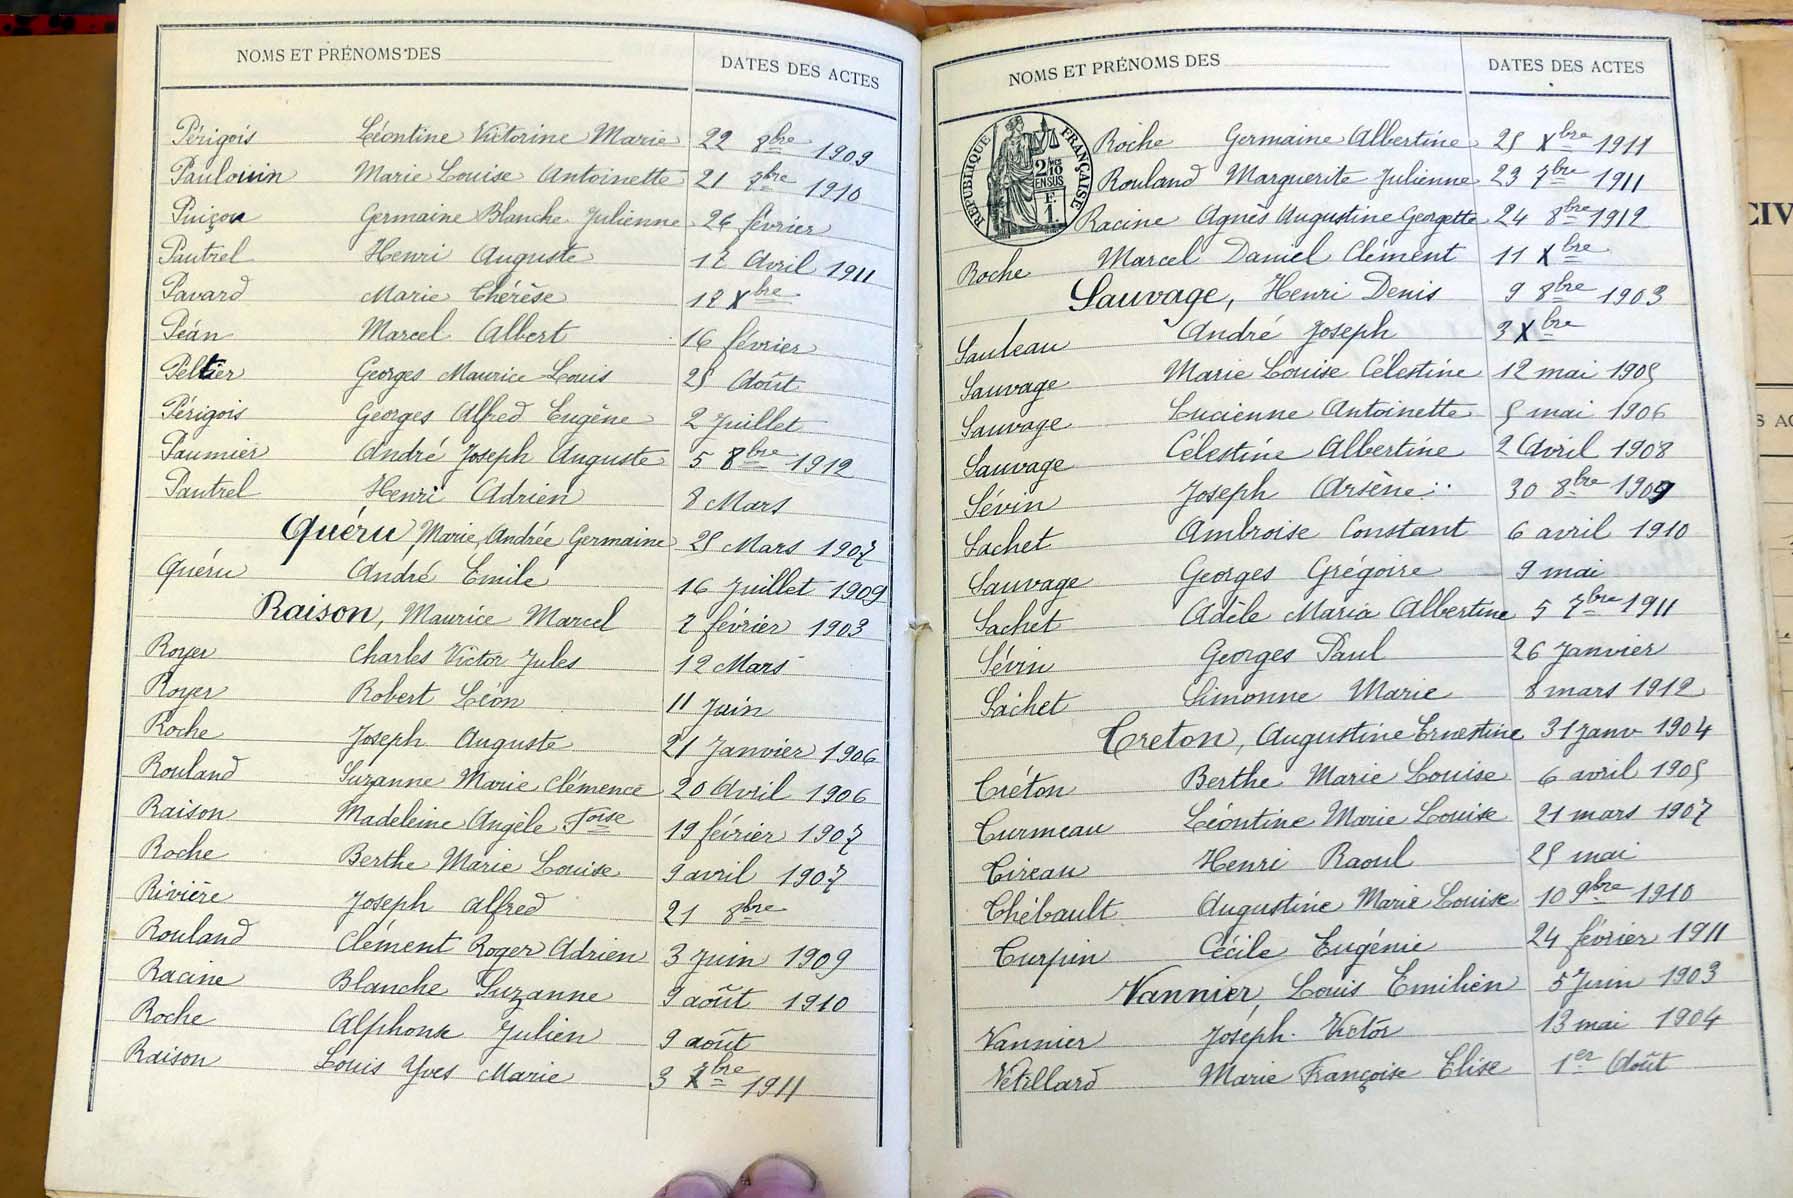 NOMS ET PRÉNOMS DES
DATES DES ACTES
Périgois Léontine Victorine Marie 22 8bre 1909
Paulouin Marie Louise Antoinette 21 7bre 1910
Pinçon Germaine Blanche Julienne 26 février
Pautrel Henri Auguste 12 Avril 1911
Pavard Marie Thérèse 12 Xbre
Péan Marcel Albert 16 février
Peltier Georges Maurice Louis 25 Août
Périgois Georges Alfred Eugène 2 Juillet
Paumier André Joseph Auguste 5 8bre 1912
Pautrel Henri Adrien 8 Mars
Quéru, Marie Andrée Germaine 25 Mars 1907
Quéru André Emile 16 Juillet 1909
Raison, Maurice Marcel 2 février 1903
Royer Charles Victor Jules 12 Mars
Royer Robert Léon 11 Juin
Roche Joseph Auguste 21 Janvier 1906
Rouland Suzanne Marie Clémence 20 Avril 1906
Raison Madeleine Angèle Foise 19 février 1907
Roche Berthe Marie Louise 9 avril 1907
Rivière Joseph Alfred 21 8bre
Rouland Clément Roger Adrien 3 juin 1909
Racine Blanche Suzanne 9 août 1910
Roche Alphonse Julien 9 août
Raison Louis Yves Marie 3 Xbre 1911
NOMS ET PRÉNOMS DES
DATES DES ACTES
RÉPUBLIQUE FRANÇAISE
2/10
EN SUS
F.
1.
Roche Germaine Albertine 25 Xbre 1911
Rouland Marguerite Julienne 23 7bre 1911
Racine Agnès Augustine Georgette 24 8bre 1912
Roche Marcel Daniel Clément 11 Xbre
Sauvage, Henri Denis 9 8bre 1903
Sauleau André Joseph 3 Xbre
Sauvage Marie Louise Célestine 12 mai 1905
Sauvage Lucienne Antoinette 5 mai 1906
Sauvage Célestine Albertine 2 Avril 1908
Sévin Joseph Arsène 30 8bre 1909
Sachet Ambroise Constant 6 avril 1910
Sauvage Georges Grégoire 9 mai
Sachet Adèle Maria Albertine 5 7bre 1911
Sévin Georges Paul 26 Janvier
Sachet Simonne Marie 8 mars 1912
Creton, Augustine Ernestine 31 janv 1904
Créton Berthe Marie Louise 6 avril 1905
Turmeau Léontine Marie Louise 21 mars 1907
Tireau Henri Raoul 25 mai
Thébault Augustine Marie Louise 10 9bre 1910
Turpin Cécile Eugénie 24 février 1911
Vannier, Louis Emilien 5 Juin 1903
Vannier Joseph Victor 13 mai 1904
Vétillard Marie Françoise Elise 1er Août
CIV
S AC